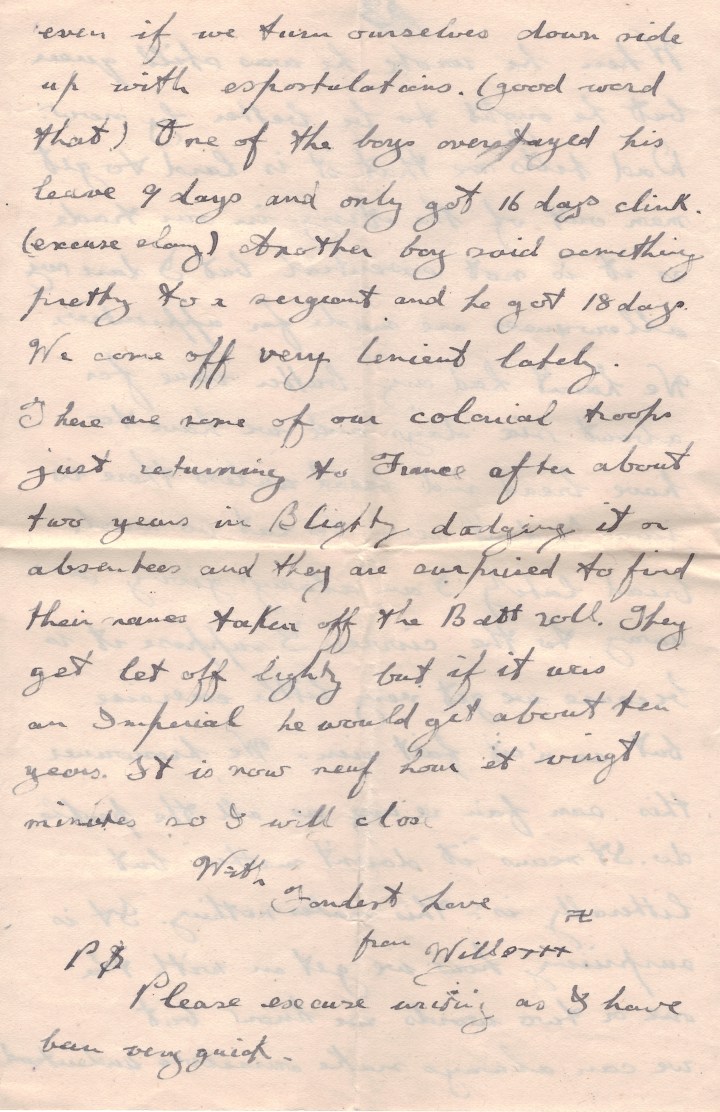 even if we turn ourselves down side
up with espostulations. (good word
that) One of the boys overstayed his
leave 9 days and only got 16 days clink.
(excuse slang) Another boy said something
pretty to a sergeant and he got 18 days.
We come off very lenient lately.
There are some of our colonial troops
just returning to France after about
two years in Blighty dodging it or
absentees and they are surprised to find
their names taken off the Batt roll. They
get let off lighty but if it was
an Imperial he would get about ten
years. It is now neuf hour et vingt
minutes so I will close
With
Fondest love
from Will
PS
Please execuse writing as I have
been very quick.